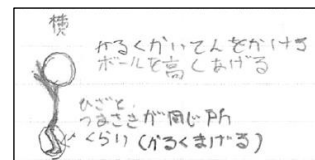 横
かるくかいてんをかける
ボールを高くあげる
ひざと
つまさきが同じ所
くらい(かるくまげる)